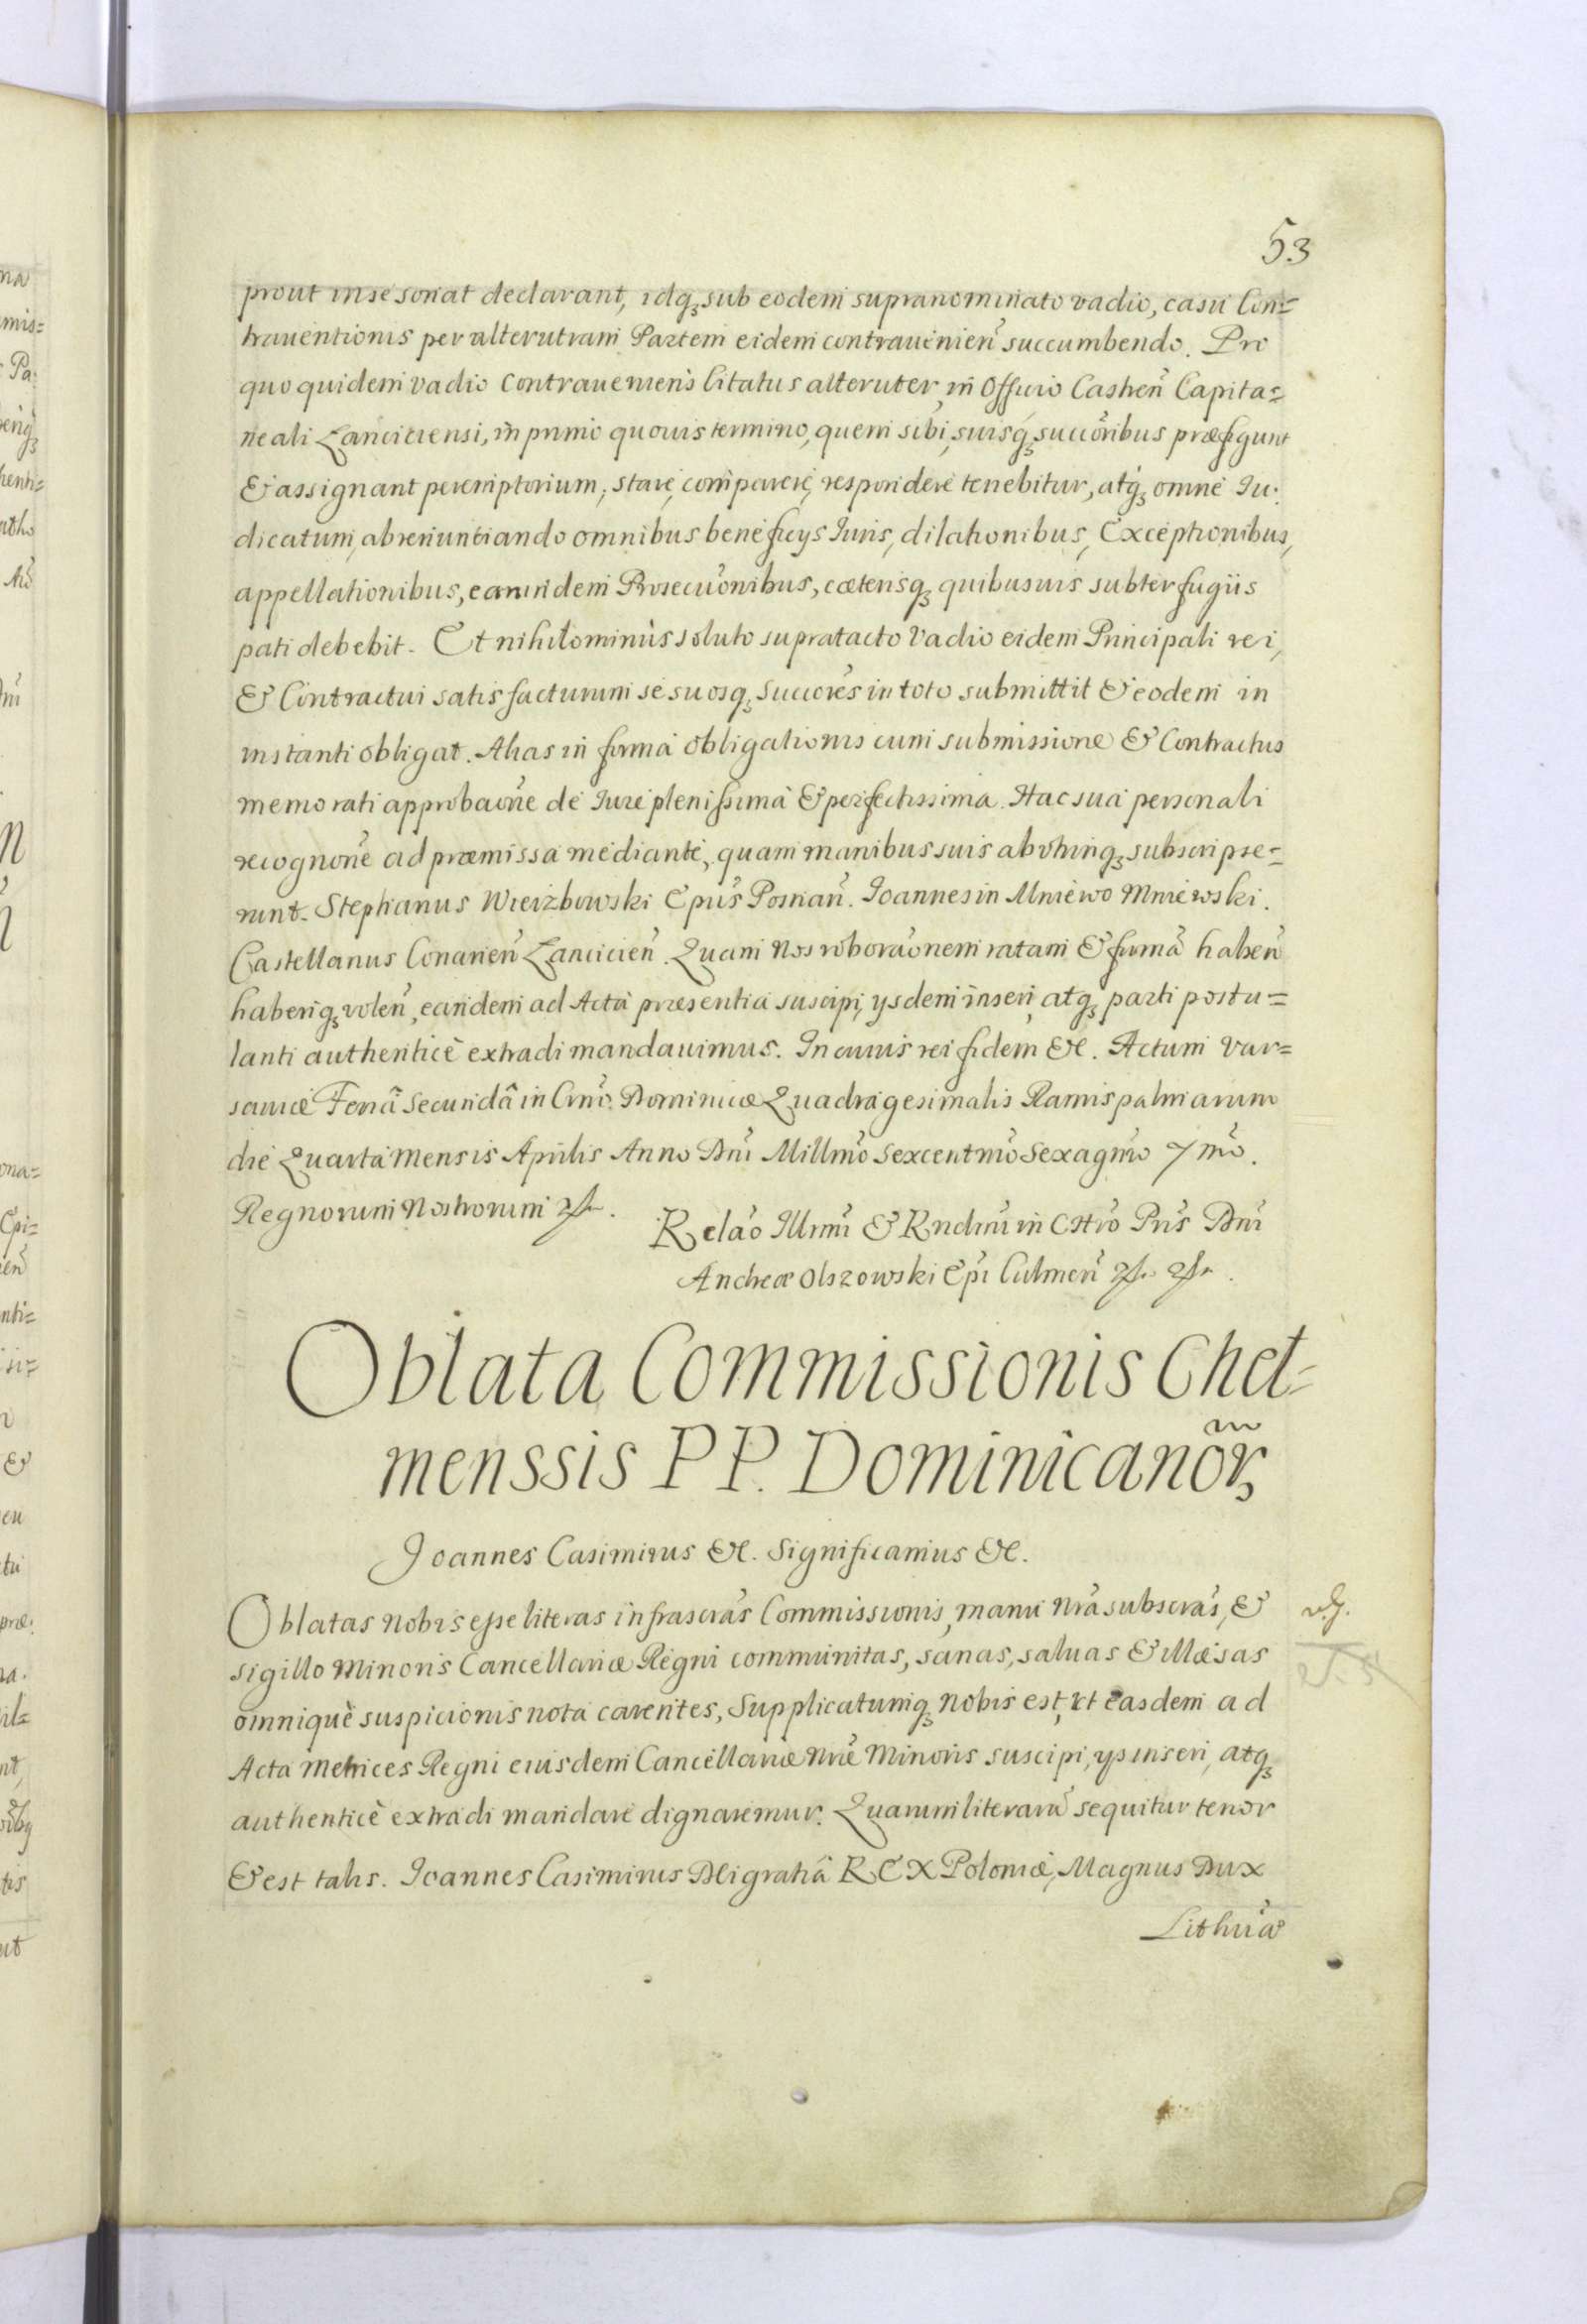 53
prout in se sonat declarant, idq₃ sub eodem supranominato vadio, casu Con=
trauentionis per alterutram Partem eidem contrauenien̄ succumbendo. Pro
quo quidem vadio contraueniens citatus alteruter, in Officio Castren̄ Capita=
neali Lanciciensi, in primo quouis termino, quem sibi, suisq₃ succōribus præfigunt
& assignant peremptorium, stare, comparere, respondere tenebitur, atq₃ omne Iu:
dicatum, abrenuntiando omnibus beneficys Iuris, dilationibus, Exceptionibus,
appellationibus, earundem Prosecuōnibus, cæterisq₃ quibusuis subterfugiis
pati debebit. Et nihilominùs soluto supratacto Vadio eidem Principali rei,
& Contractui satisfacturum se suosq₃ Succorēs in toto submittit & eodem in
instanti obligat. Alias in forma obligationis cum submissione & Contractus
memorati approbaōne de Iure plenissima & perfectissima. Hac sua personali
recognōne ad præmissa mediante, quam manibus suis abvtrinq₃ subscripse=
runt. Stephanus Wierzbowski Epūs Posnan̄. Joannes in Mniewo Mniewski.
Castellanus Conarien̄ Lancicien̄. Quam Nos roboraōnem ratam & firmā haben̄
haberiq₃ volen̄, eandem ad Acta præsentia suscipi, ysdem inseri, atq₃ parti postu=
lanti authenticè extradi mandauimus. In cuius rei fidem &c. Actum Var=
sauiæ Feriā Secundâ in Crn̄o Dominicæ Quadragesimalis Ramis palmarum
die Quarta Mensis Aprilis Anno Dnī Millmō Sexcentmō Sexagmō 7 mō.
Regnorum Nostrorum
Relaō Illrmī & Rndmī in Chrō Prīs Dnī
Andreæ Olszowski Epī Culmen̄
Oblata Commissionis Chel=
menssis PP. Dominicanōr₃
Joannes Casimirus &c. Significamus &c.
Oblatas Nobis esse literas infrascrās Commissionis, manu Nrā subscrās, &
sigillo Minoris Cancellariæ Regni communitas, sanas, saluas & illæsas
omniquè suspicionis nota carentes, Supplicatumq₃ Nobis est, vt easdem ad
Acta Metrices Regni eiusdem Cancellariæ Nrǣ Minoris suscipi, ys inseri, atq₃
authenticè extradi mandare dignaremur. Quarum literarū sequitur tenor
& est talis. Joannes Casimirus DEI gratiâ REX Poloniæ, Magnus Dux
Lithuā